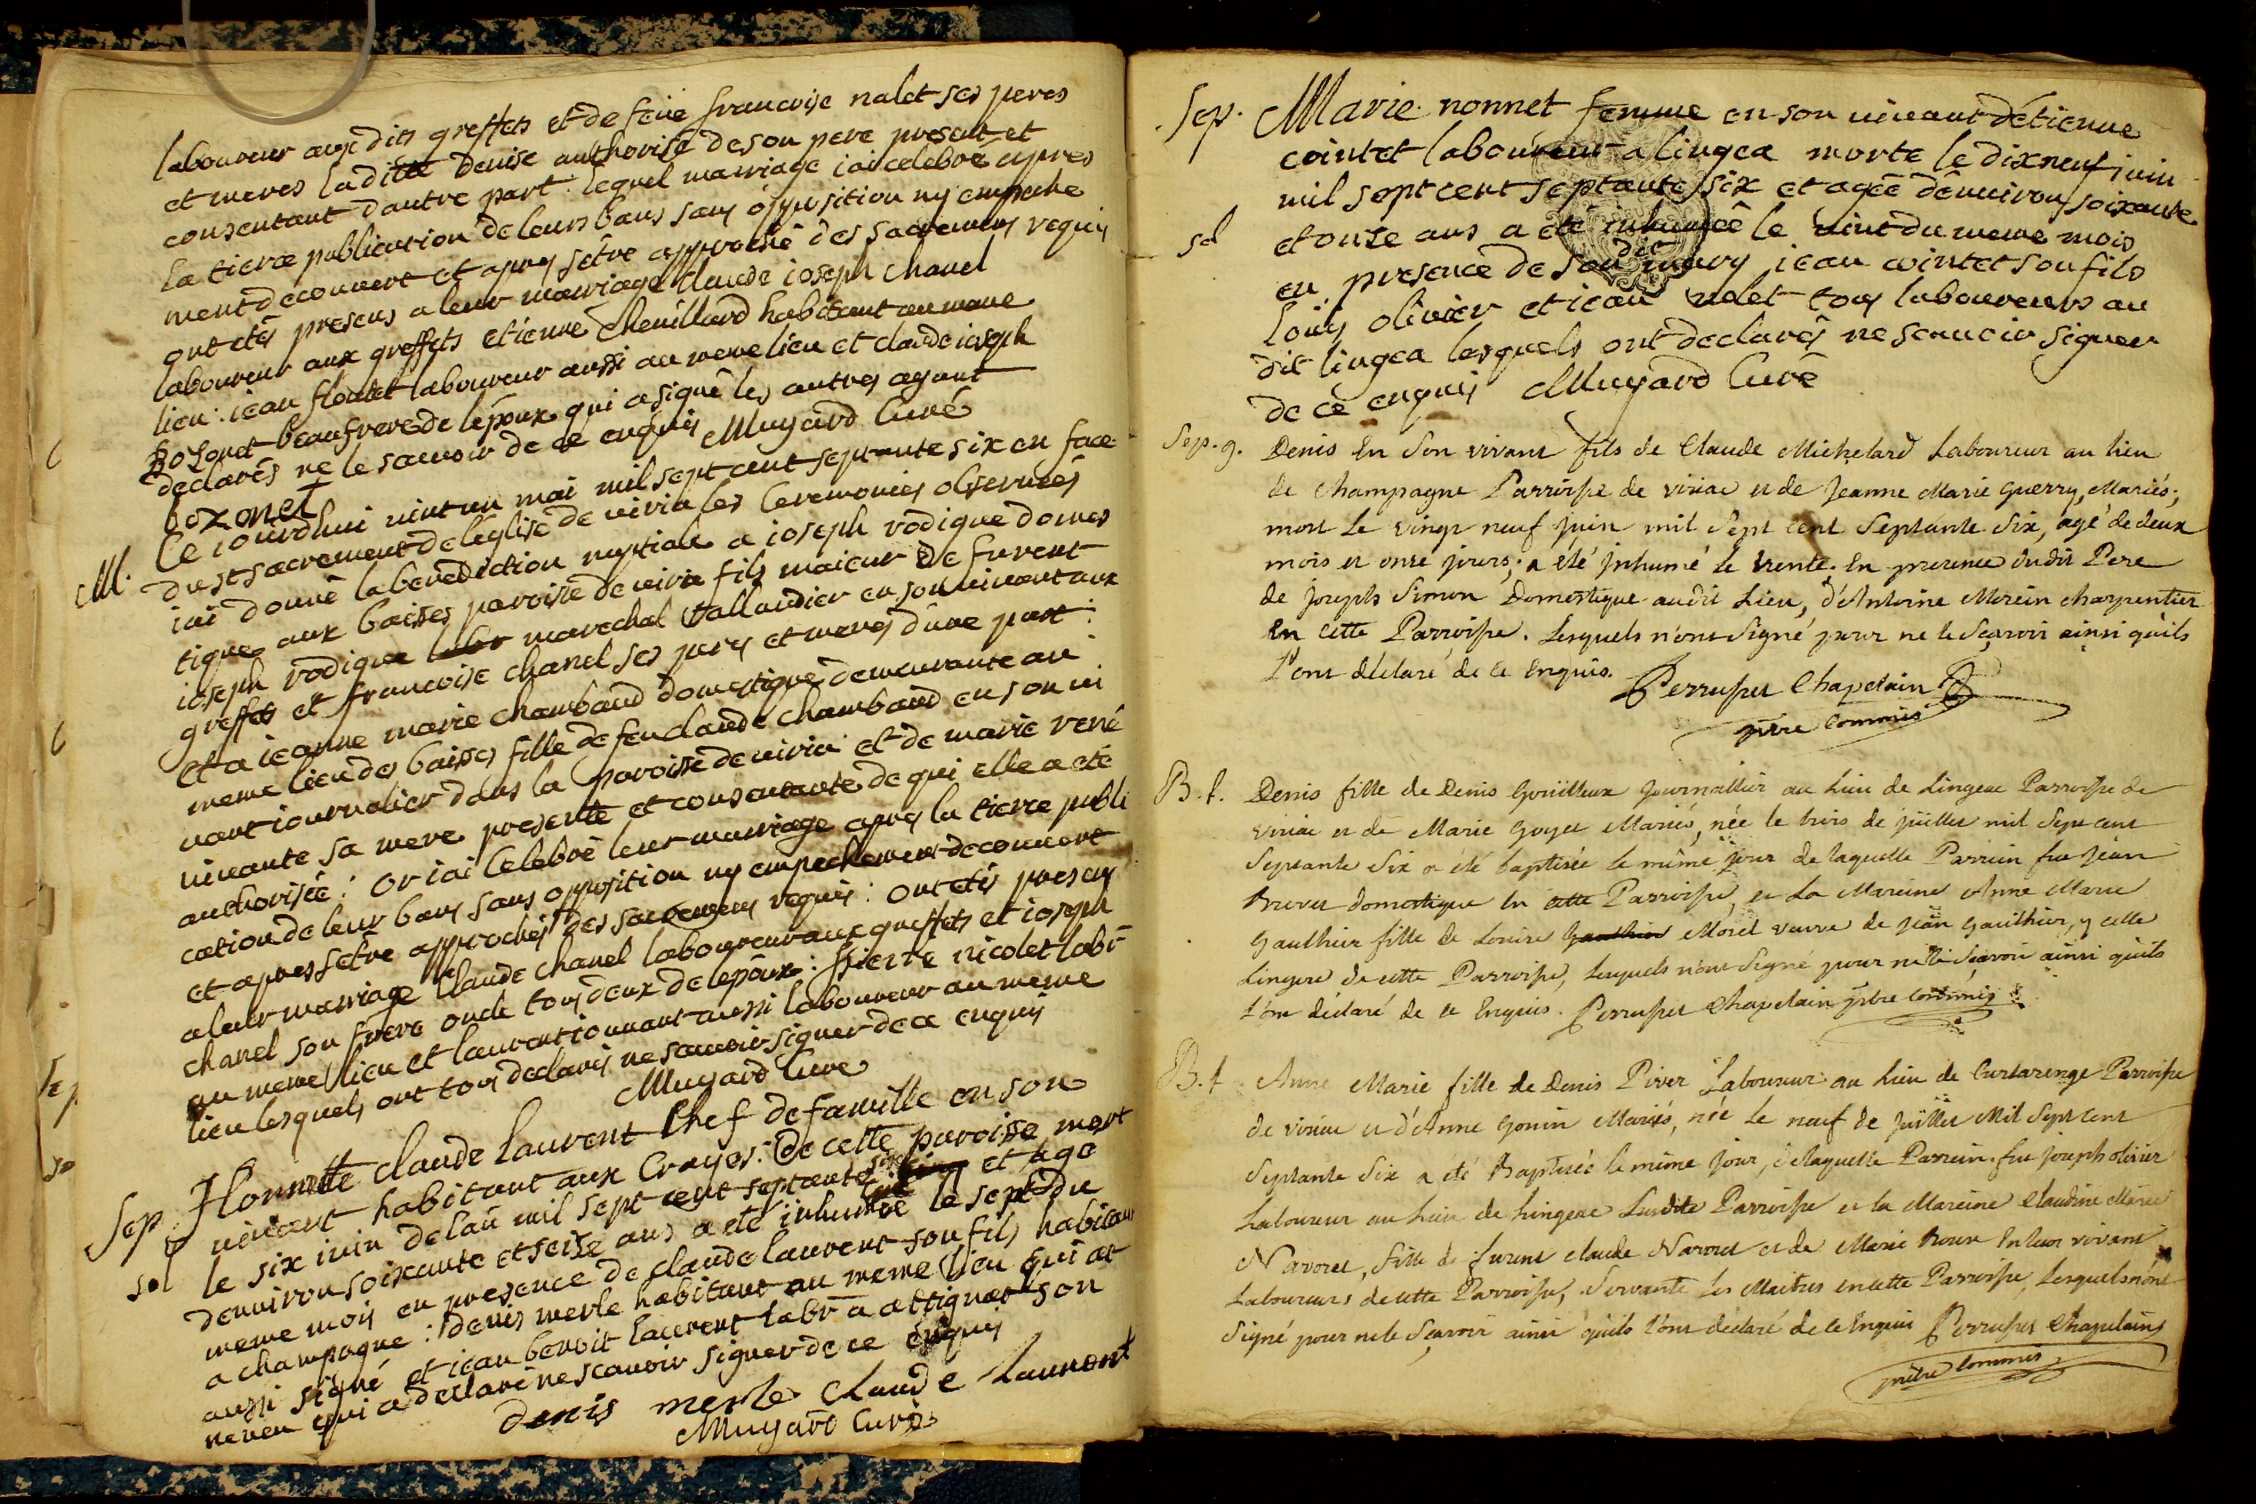 laboureur aux dits greffets et de feüe francoise nalet ses peres
et meres ladite denise authorisé de son pere present et
consentant dautre part. lequel mariage iai celebré apres
la tierce publication de leurs bans sans opposition ny empeche
ment decouvert et apres sétre approché des sacremens requis
ont etés presens a leur mariage claude ioseph chanel
laboureur aux greffets etienne chevillard habitant au meme
lieu: iean floutet laboureur aussi au meme lieu et claude ioseph
bozonet beaufrere de lépoux qui a signé les autres ayant
declarés ne le scavoir de ce enquis Muyard Curé
bozonet
M. Ce iourdhui vint un mai mil sept cent septante six en face
du st sacrement de leglise de viria les Ceremonies observées
iai donné la benediction nuptiale a ioseph rodigue domes
tique aux baisses paroisse de viria fils maieur de furent
ioseph rodigue marechal tallandier en son vivant aux
greffets et francoise chanel ses peres et meres dune part:
et a ieanne marie chambaud domestique demeurante au
meme lieu des baisses fille de feu claude chambaud en son vi
vant iournalier dans la paroisse de viria et de marie rené
vivante sa mere presente et consentante de qui elle a eté
authorisée: or iai celebré leur mariage apres la tierce publi
cation de leur bans sans opposition ny empechement decouvert
et apres sétre approchés des sacremens requis: ont etés presens
a leur mariage claude chanel laboureur aux greffets et ioseph
chanel son frere oncle tous deux de lépoux: pierre nicolet labr
au meme lieu et laurent ionnart aussi laboureur au meme
lieu lesquels ont tous declarés ne scavoir signer de ce enquis
Muyard Cure
Sep. Honnette claude laurent Chef de famille en son
vivant habitant aux Crayes: de cette paroisse mort
sol le six iuin de lan mil sept cent septante six et age
denviron soixante et seise ans a eté inhumé le sept du
meme mois en presence de claude laurent son fils habitant
a champagne: denis merle habitant au meme lieu qui at
aussi signé et iean benoit laurent labr a attignat son
neveu qui a declaré ne scavoir signer de ce enquis
denis merle claude laurent
Muyard Curé
Sep. Marie nonnet femme en son vivant détienne
cointet laboureur a lingea morte le dixneuf iuin
mil sept cent septante six et agée dénviron soixante
sol et onse ans a été inhumée le vint du meme mois
en presence de son dit mary iean cointet son fils
louis olivier et iean nalet tous laboureurs au
dit lingea lesquels ont declarés ne scavoir signer
de cè enquis Muyard Curé
Sep. g. Denis En Son vivant fils de Claude Michelard Laboureur au lieu
de Champagne Parroisse de viriac et de Jeanne Marie Guerry, Mariés;
mort Le vingt neuf Juin mil Sept Cent Septante Six, agé de deux
mois et onze jours; a été Jnhumé le trente. En presence dudit Pere
de Joseph Simon Domestique audit Lieu, d'Antoine Morein charpentier
En cette Parroisse. Lesquels n'ont Signé pour ne le Sçavoir ainsi qu'ils
l'ont déclaré de ce Enquis. Perruset Chapelain
prêtre Commis
B. f. Denis fille de Denis Goüilloux Journallier au Lieu de Lingeae Parroisse de
viriac et de Marie Goyet Mariés, née le trois de jüillet mil Sept cent
Septante Six a été baptisée le même jour de laquelle Parrein fut Jean
domestique en cette Parroisse, et La Mareine Anne Marie
Gauthier fille de Louise Morel veuve de Jean Gauthier, y celle
Lingere de cette Parroisse, Lesquels n'ont Signé pour ne le Sçavoir ainsi qu'ils
l'ont déclaré de ce Enquis. Perruset Chapelain prêtre Commis
B. f. Anne Marie fille de Denis Piver Laboureur au Lieu de Curtarenge Parroisse
de viriac et d'Anne Gonin Mariés, née Le neuf de Juillet Mil Sept Cent
Septante Six a été Baptisée le même Jour, de laquelle Parrein fut Joseph olivier
Laboureur au Lieu de Lingeae Susdite Parroisse et la Mareine Claudine Marie
Navoret, fille de furent Claude Navoret et de Marie En leur vivant
Laboureurs de cette Parroisse, Servante Les Maitres en cette Parroisse, Lesquels n'ont
Signé pour ne le Sçavoir ainsi qu'ils l'ont déclaré de ce Enquis Perruset Chapelain
prêtre Commis